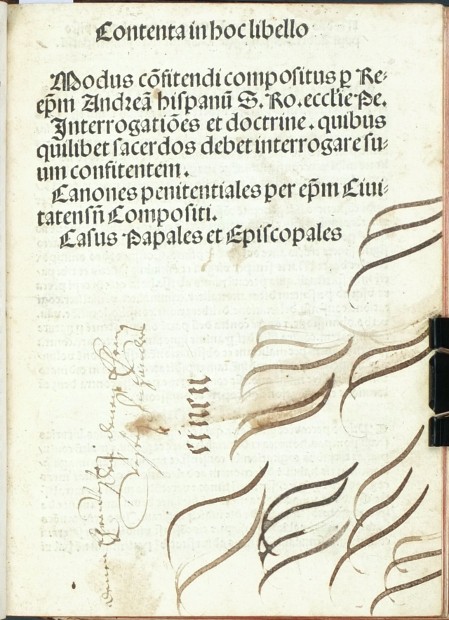 Contenta in hoc libello
Modus cōfitendi compositus ꝑ Re-
epm̄ Andreā hispanū S. Ro. eccl̄ie Pe.
Interrogatiōes et doctrine. quibus
quilibet sacerdos debet interrogare su-
um confitentem.
Canones penitentiales per epm̄ Ciui-
tatensn̄ Compositi.
Casus Papales et Episcopales
einen